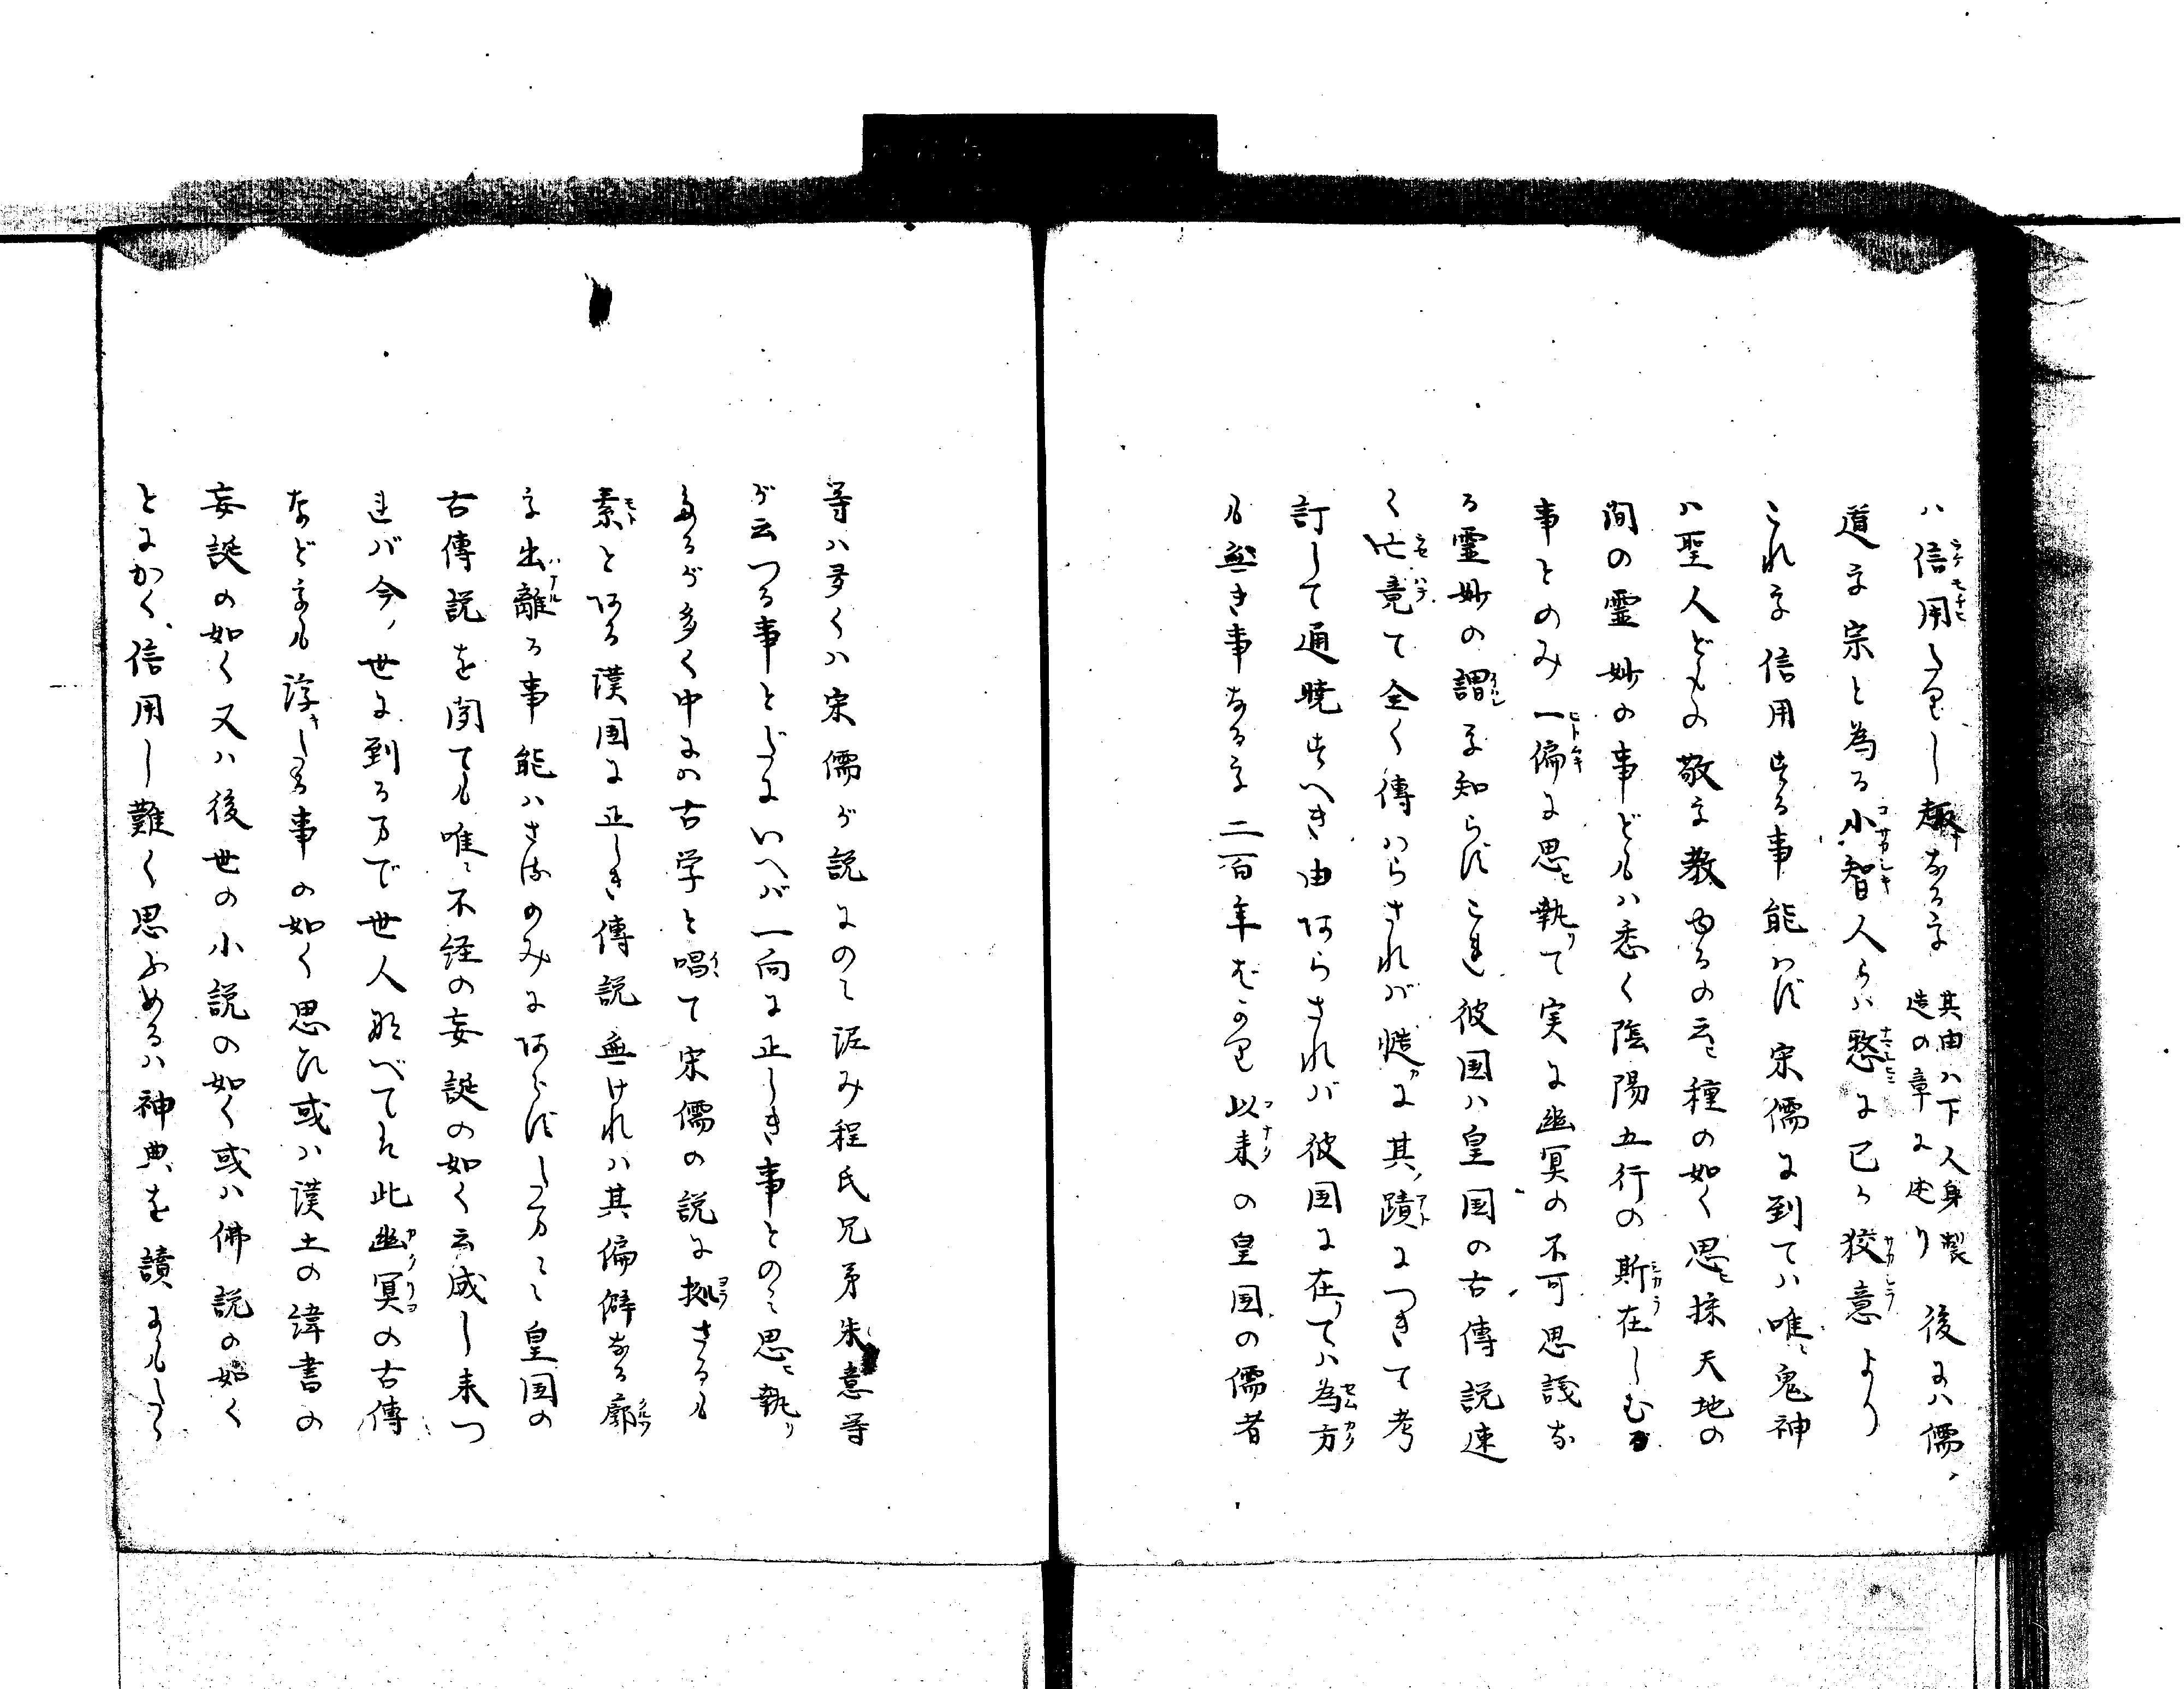 ハ信用たりし趣なるを 其由ハ下人身製造の章に述り 後にハ儒
道を宗と為る小智人らハ憖に己が狡意より
これを信用する事能ハず宋儒に到てハ唯に鬼神
ハ聖人どもの敬を教ゆるの云種の如く思ひ採天地の
間の霊妙の事どもハ悉く陰陽五行の斯在しむる
事とのみ一偏に思ひ執りて実に幽冥の不可思議な
る霊妙の謂を知らずこれ彼国ハ皇国の古傳説速
く亡竟て全く傳はらされバ慥に其ノ蹟につきて考
訂して通暁すへき由あらされバ彼国に在りてハ為方
も無き事なるを二百年ばかり以来の皇国の儒者
等ハ多くハ宋儒が説にのミ泥み程氏兄弟朱意等
が云つる事とだにいへバ一向に正しき事とのミ思ひ執り
たるが多く中にハ古学と唱て宋儒の説に拠さるも
素とある漢国に正しき傳説無けれハ其偏僻なる廓
を出離る事能ハさるのみにあらずしてハ皇国の
古傳説を聞ても唯に不経の妄誕の如く云成し来つ
れバ今ノ世に到るまで世人なべてハ此幽冥の古傳
などをも浮きたる事の如く思ひ或ハ漢土の緯書の
妄誕の如く又ハ後世の小説の如く或ハ佛説の如く
とにかく信用し難く思ふめるハ神典を讀にもたゝ